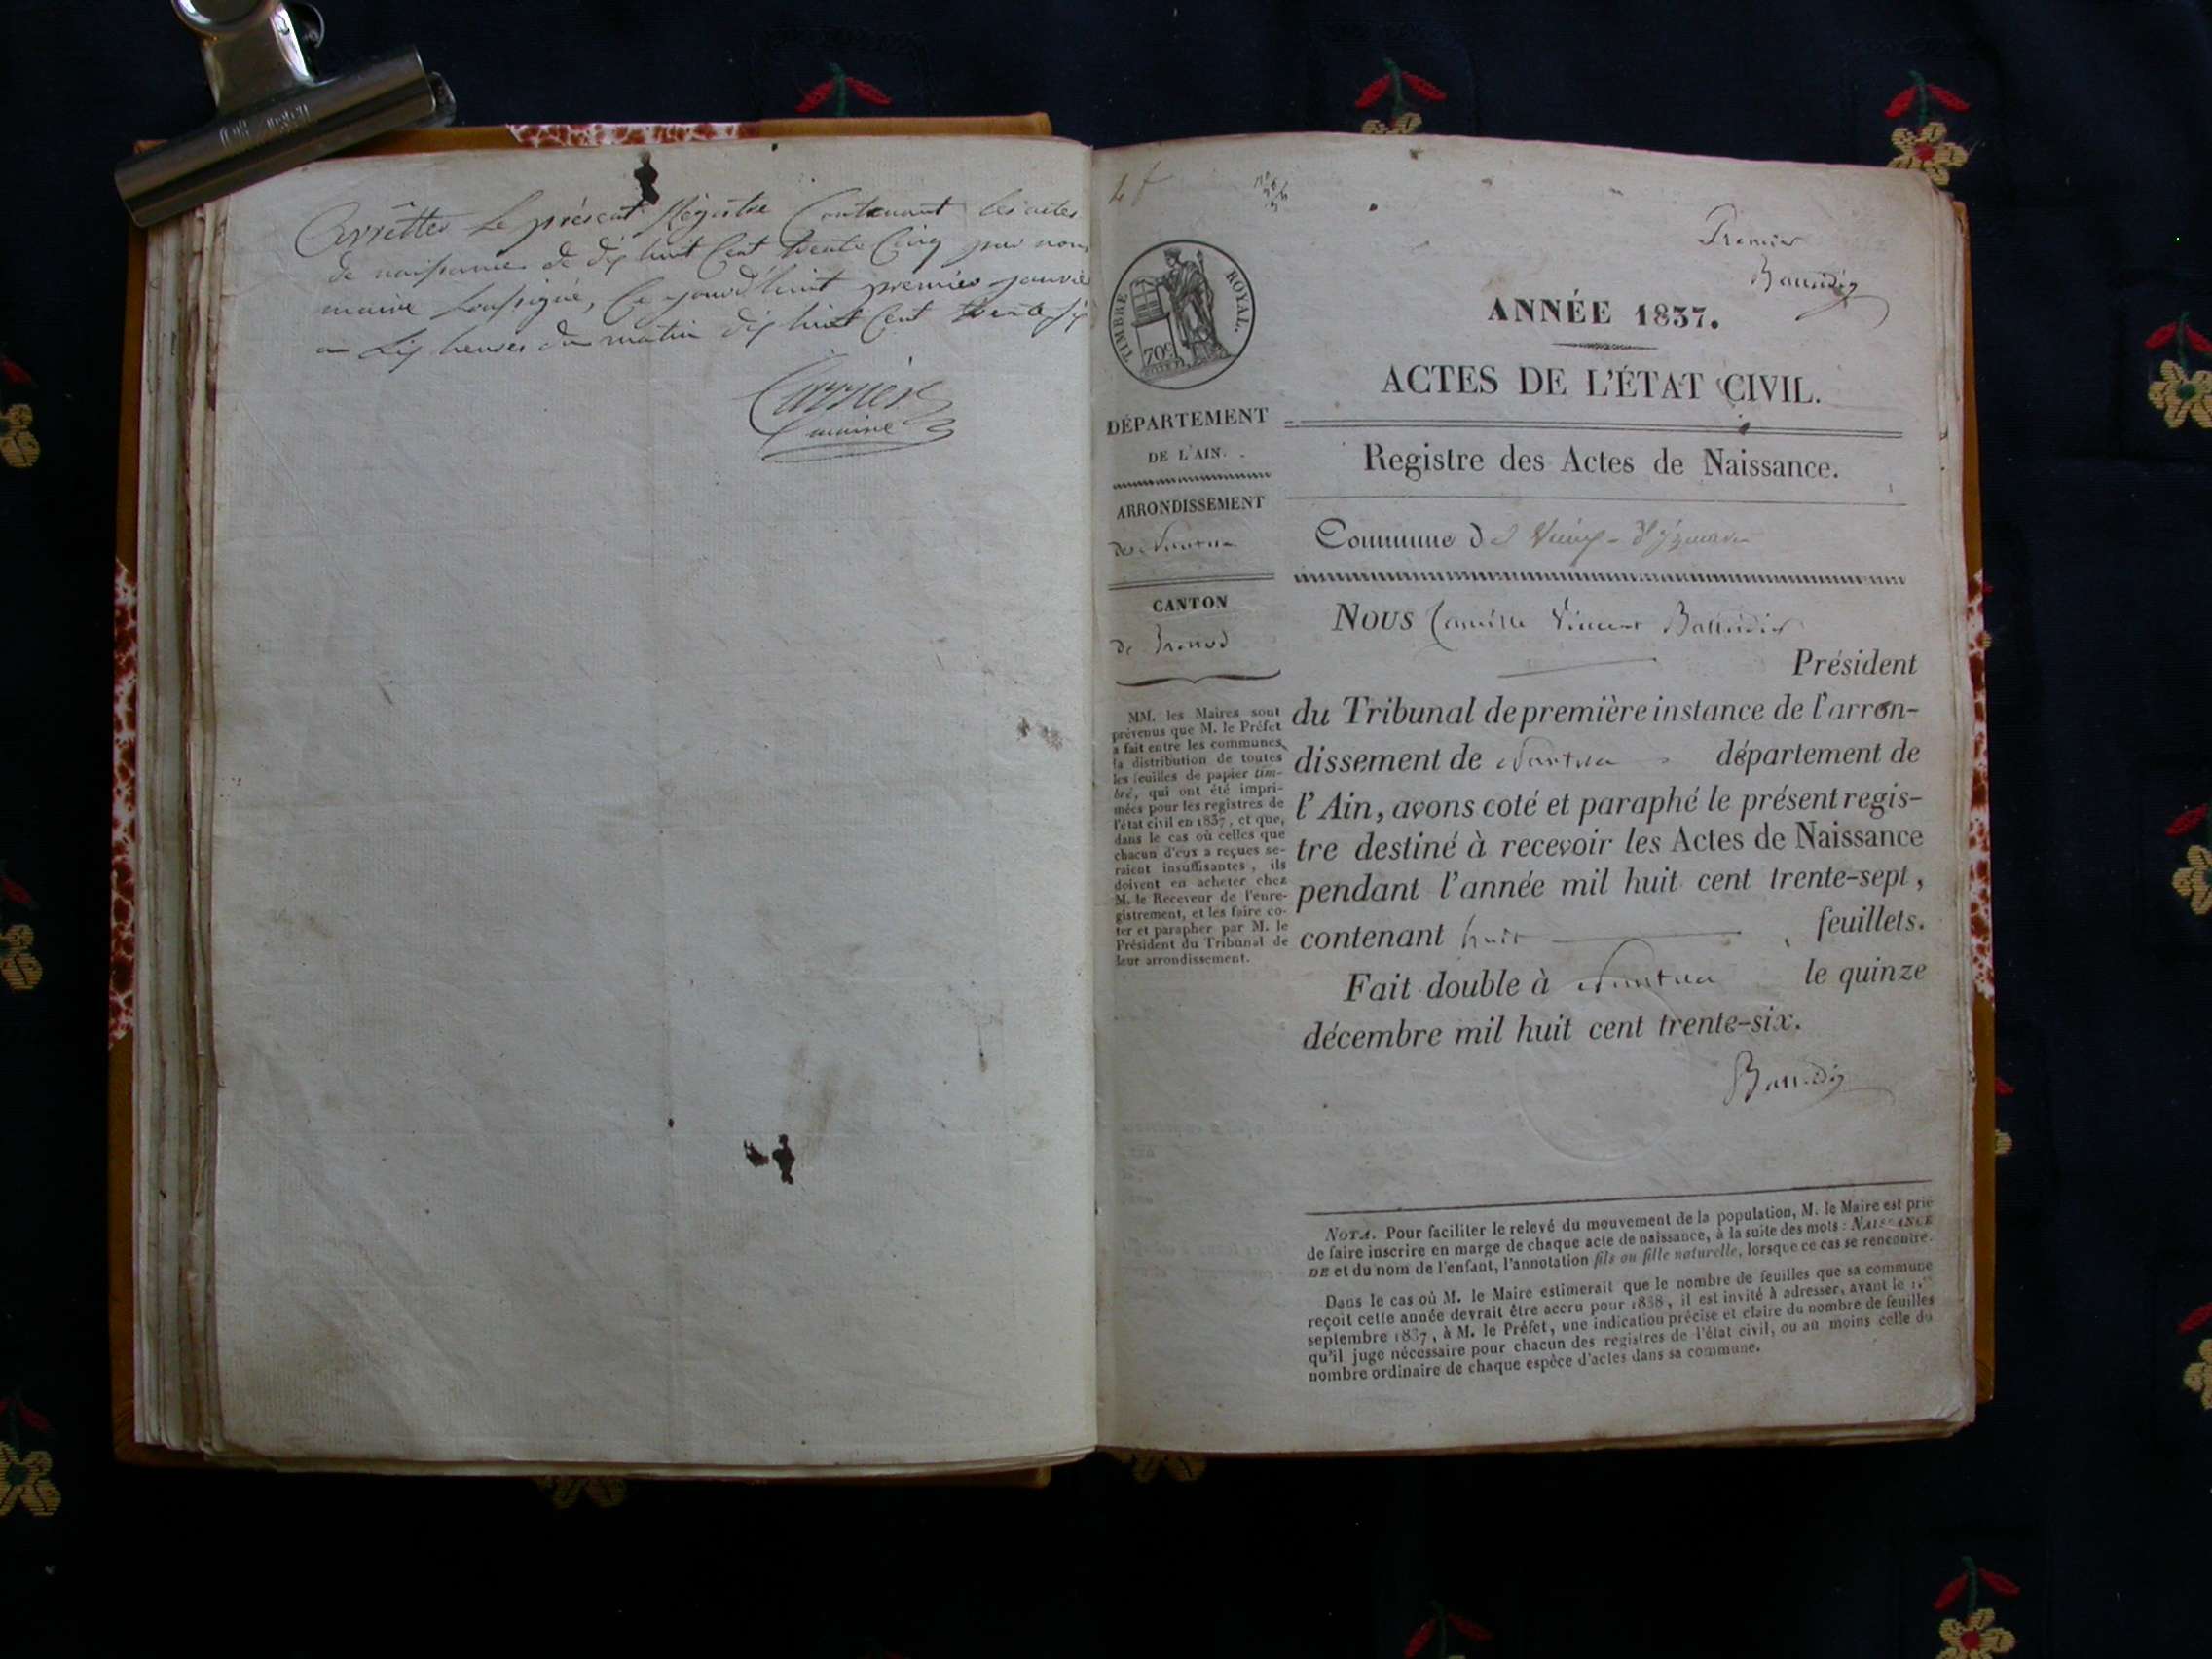 Arrêtter le présent Régistre Contenant les actes
de naissance de dix huit Cent trente Cinq par nous
maire soussigné, Ce jourd'huit premier janvier
a dix heures du matin dix huit Cent trente six
Carrier
maire
Premier
TIMBRE ROYAL.
70c
ANNÉE 1837.
ACTES DE L'ÉTAT CIVIL.
DÉPARTEMENT
DE L'AIN.
Registre des Actes de Naissance.
ARRONDISSEMENT
de Nantua
Commune de Vieux-d'Izenave
CANTON
de Brenod
MM. les Maires sont
prévenus que M. le Préfet
a fait entre les communes
la distribution de toutes
les feuilles de papier tim-
bré, qui ont été impri-
mées pour les registres de
l'état civil en 1837, et que,
dans le cas où celles que
chacun d'eux a reçues se-
raient insuffisantes, ils
doivent en acheter chez
M. le Receveur de l'enre-
gistrement, et les faire co-
ter et parapher par M. le
Président du Tribunal de
leur arrondissement.
Nous Camille Vincent
Président
du Tribunal de première instance de l'arron-
dissement de Nantua département de
l'Ain, avons coté et paraphé le présent regis-
tre destiné à recevoir les Actes de Naissance
pendant l'année mil huit cent trente-sept,
contenant huit feuillets.
Fait double à Nantua le quinze
décembre mil huit cent trente-six.
NOTA. Pour faciliter le relevé du mouvement de la population, M. le Maire est prié
de faire inscrire en marge de chaque acte de naissance, à la suite des mots : NAISSANCE
DE et du nom de l'enfant, l'annotation fils ou fille naturelle, lorsque ce cas se rencontre.
Dans le cas où M. le Maire estimerait que le nombre de feuilles que sa commune
reçoit cette année devrait être accru pour 1838, il est invité à adresser, avant le 1.er
septembre 1837, à M. le Préfet, une indication précise et claire du nombre de feuilles
qu'il juge nécessaire pour chacun des registres de l'état civil, ou au moins celle du
nombre ordinaire de chaque espèce d'actes dans sa commune.